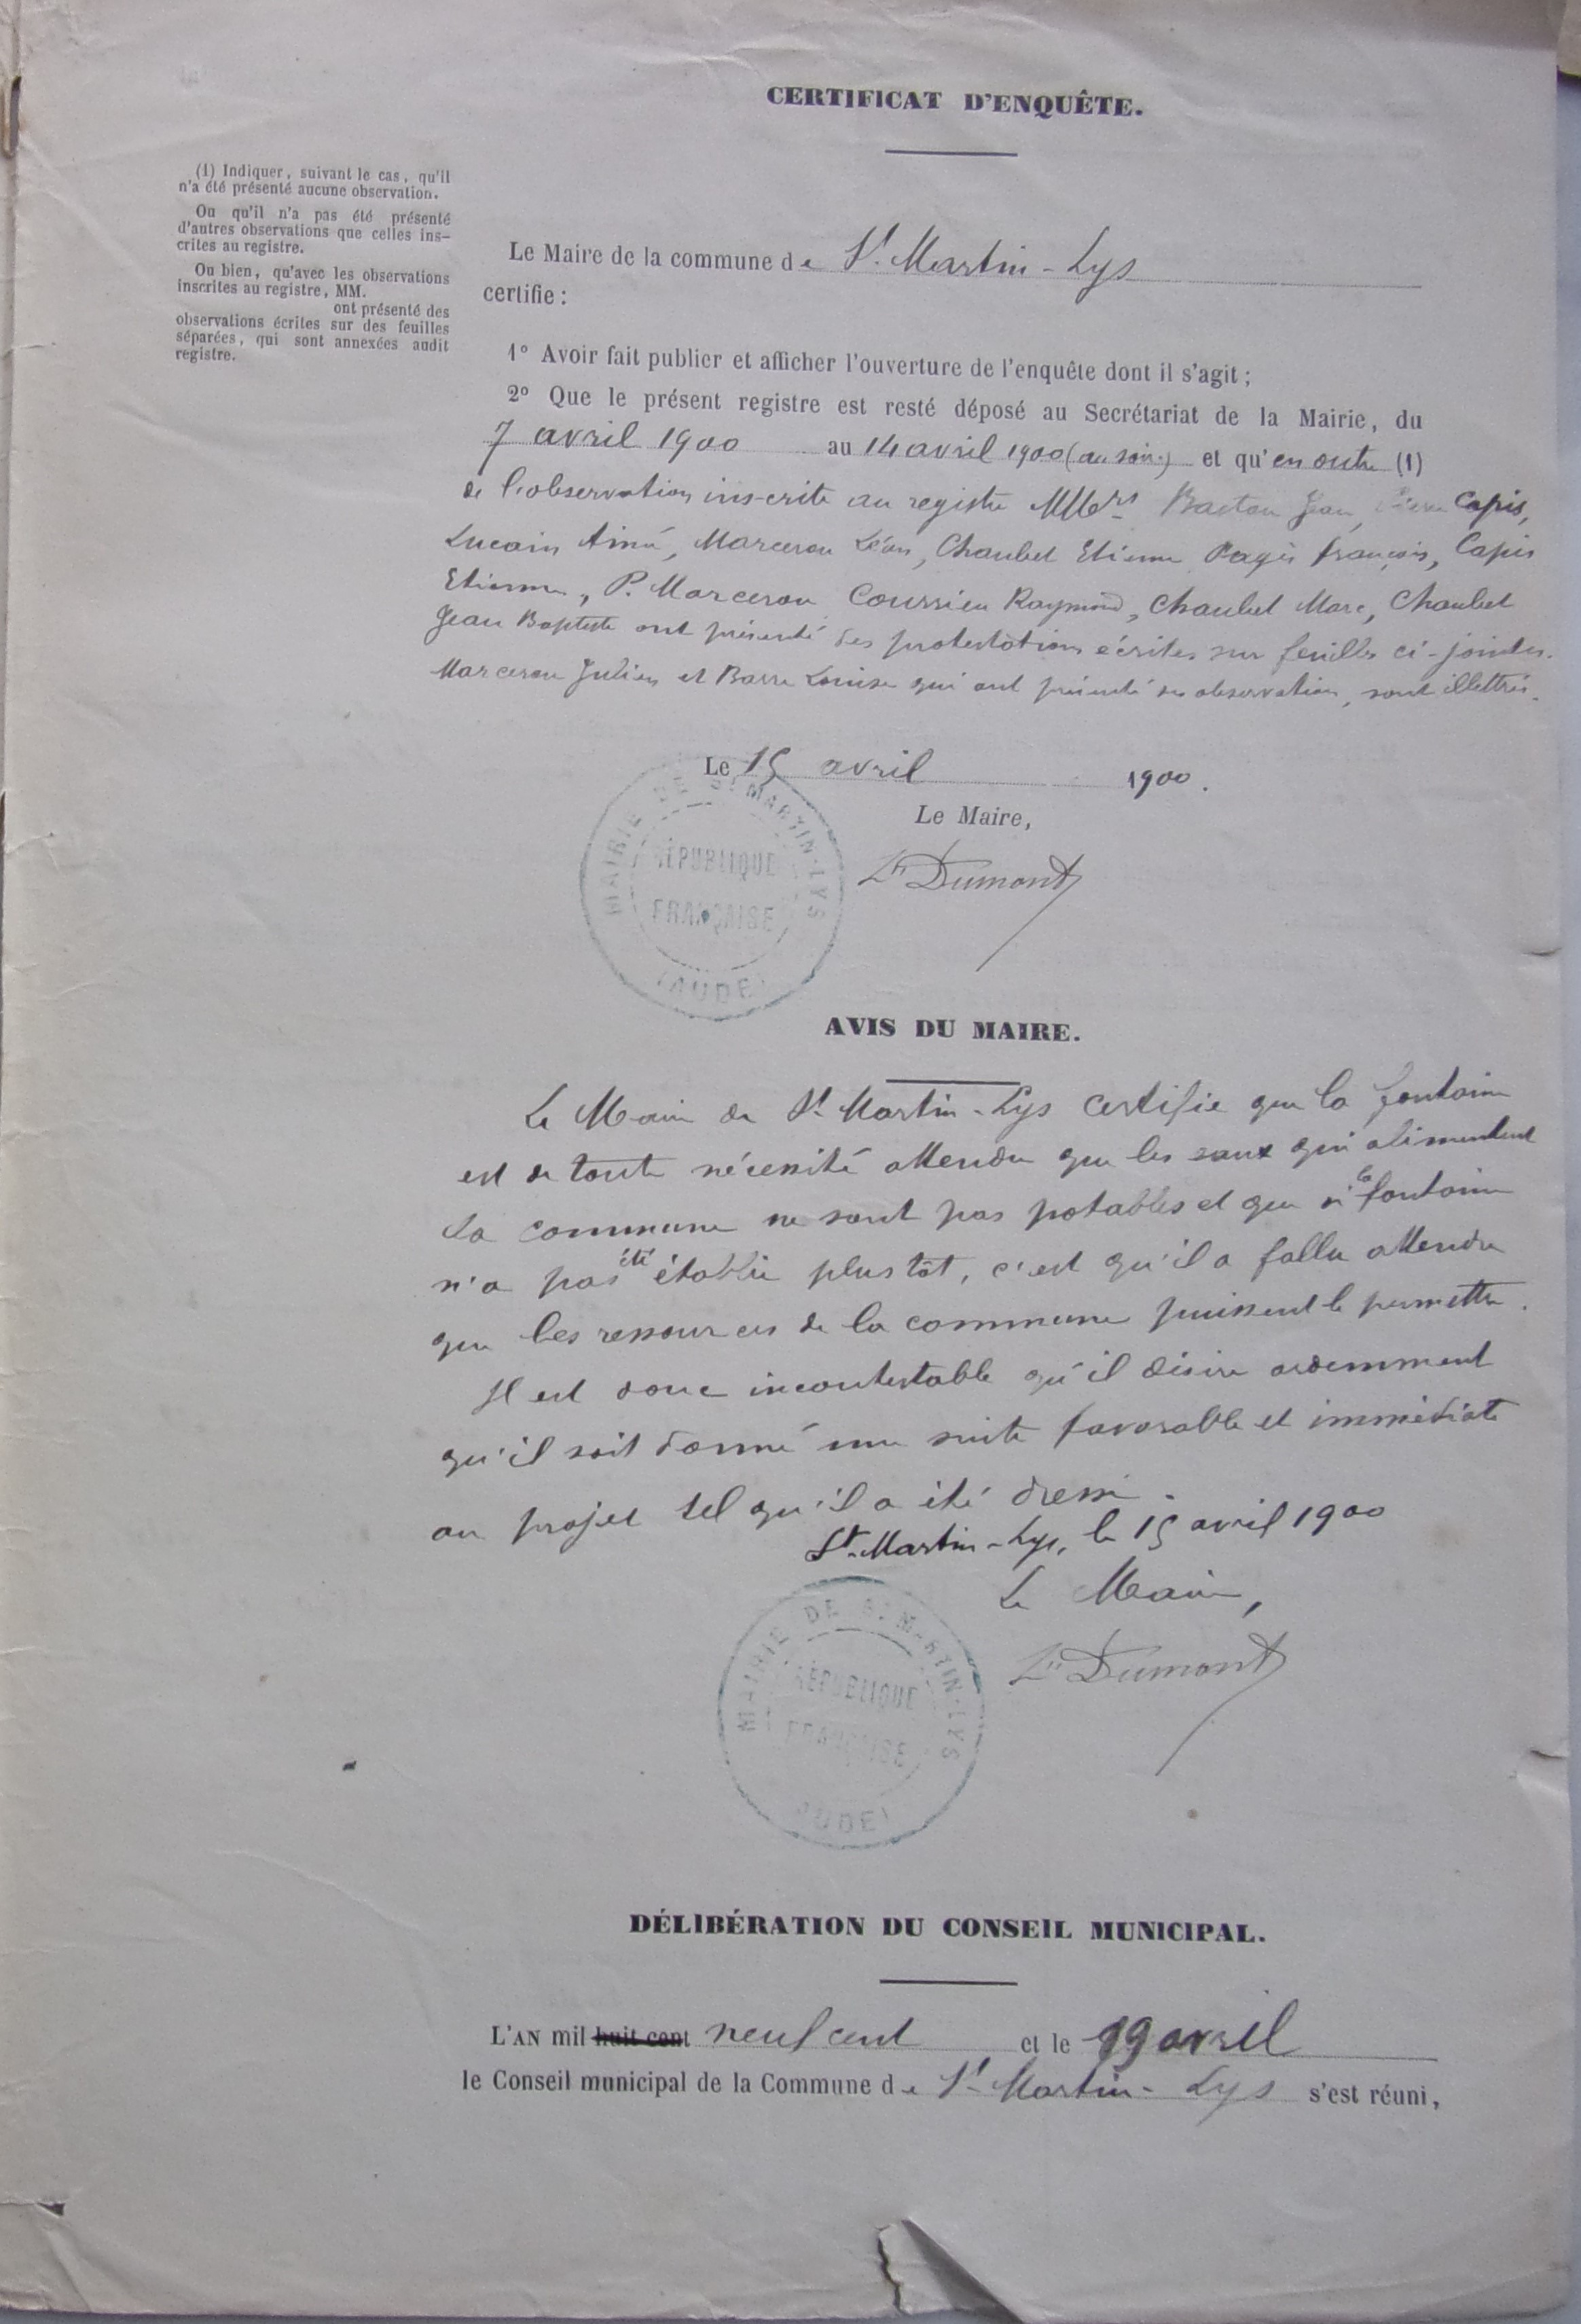 CERTIFICAT D'ENQUÊTE.
(1) Indiquer, suivant le cas, qu'il
n'a été présenté aucune observation.
Ou qu'il n'a pas été présenté
d'autres observations que celles ins-
crites au registre.
Ou bien, qu'avec les observations
inscrites au registre, MM.
ont présenté des
observations écrites sur des feuilles
séparées, qui sont annexées audit
registre.
Le Maire de la commune de St. Martin-Lys
certifie :
1° Avoir fait publier et afficher l'ouverture de l'enquête dont il s'agit ;
2° Que le présent registre est resté déposé au Secrétariat de la Mairie, du
7 avril 1900 au 14 avril 1900 (au soir) et qu'en outre (1)
de l'observation inscrite au registre Jean Capis,
Lucain Aimé, Marceron Léon, Chaubet Etienne Pagès François, Capis
Etienne, P. Marceron Coussieu Raymond, Chaubet Marc, Chaubet
Jean Baptiste ont présenté des protestations écrites sur feuilles ci-jointes.
Marceron Julien et Barre Louise qui ont présenté observation, sont illettrés.
Le 15 avril 1900.
Le Maire,
Dumont
MAIRIE DE ST MARTIN-LYS
RÉPUBLIQUE
FRANÇAISE
(AUDE)
AVIS DU MAIRE.
Le Maire de St. Martin-Lys certifie que la fontaine
est de toute nécessité attendu que les eaux qui alimentent
la commune ne sont pas potables et que si la fontaine
n'a pas été établie plus tôt, c'est qu'il a fallu attendre
que les ressources de la commune puissent le permettre.
Il est donc incontestable qu'il désire ardemment
qu'il soit donné une suite favorable et immédiate
au projet tel qu'il a été dressé.
St-Martin-Lys, le 15 avril 1900
Le Maire,
Dumont
MAIRIE DE ST MARTIN-LYS
RÉPUBLIQUE
FRANÇAISE
AUDE)
DÉLIBÉRATION DU CONSEIL MUNICIPAL.
L'AN mil huit cent neuf cent et le 19 avril
le Conseil municipal de la Commune de St Martin-Lys s'est réuni,